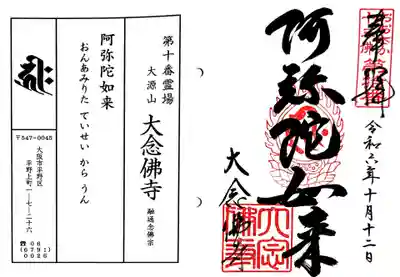 奉拝
令和六年十月十二日
阿弥陀如来
大念佛寺
第十番霊場
大源山 大念佛寺 融通念佛宗
阿弥陀如来
おんあみりた ていせい から うん
〒547-0045
大阪市平野区
平野上町一-七-二六
☎06
(6791)
0026